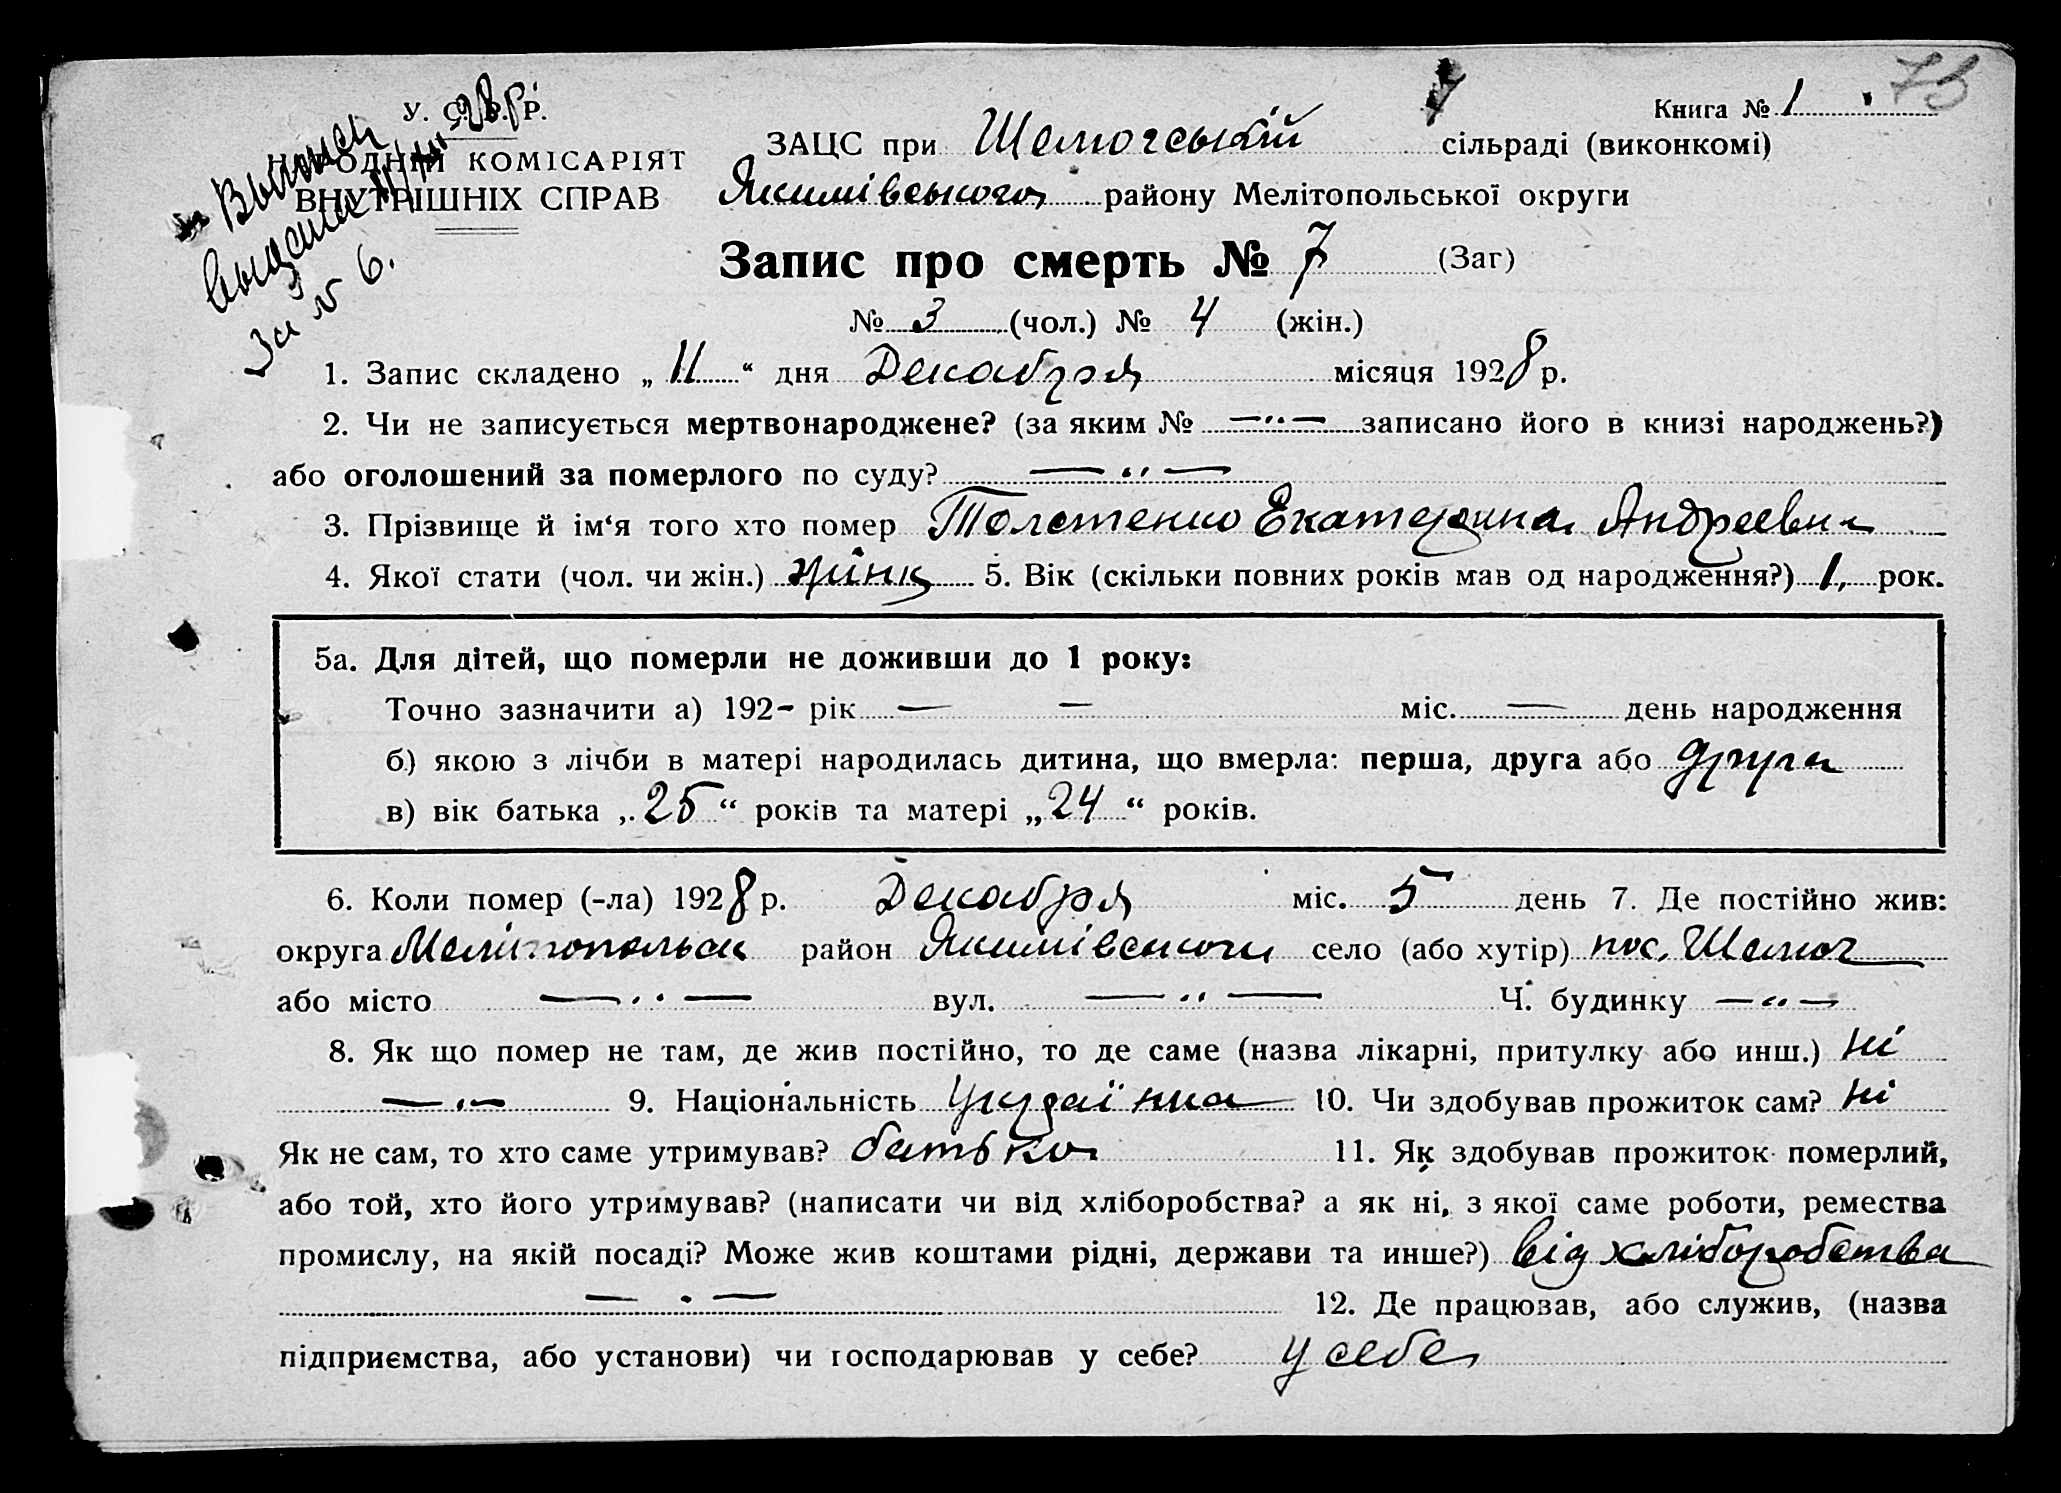 У. С. Р. Р.
НАРОДНІЙ КОМІСАРІЯТ
ВНУТРІШНІХ СПРАВ
Выпись
выдана
За № 6.
73
Книга № 1
ЗАЦС при сільраді (виконкомі)
Якимівського району Мелітопольської округи
Запис про смерть № 7 (Заг)
№ 3 (чол.) № 4 (жін.)
1. Запис складено „ 11 “ дня Декабря місяця 1928 р.
2. Чи не записується мертвонароджене? (за яким № —"— записано його в книзі народжень?)
або оголошений за померлого по суду? —"—
3. Прізвище й ім‘я того хто помер Толстенко Екатерина Андреевна
4. Якої стати (чол. чи жін.) жінц 5. Вік (скільки повних років мав од народження?) 1, рок.
5а. Для дітей, що померли не доживши до 1 року:
Точно зазначити а) 192- рік — — міс. — день народження
б) якою з лічби в матері народилась дитина, що вмерла: перша, друга або друга
в) вік батька „ 25 “ років та матері „ 24 “ років.
6. Коли помер (-ла) 1928 р. Декабря міс. 5 день 7. Де постійно жив:
округа Мелітопольськ район Якимівського село (або хутір) пос.
або місто —"— вул. —"— Ч. будинку —"—
8. Як що помер не там, де жив постійно, то де саме (назва лікарні, притулку або инш.) ні
—"— 9. Національність Украінка 10. Чи здобував прожиток сам? ні
Як не сам, то хто саме утримував? батько 11. Як здобував прожиток померлий,
або той, хто його утримував? (написати чи від хліборобства? а як ні, з якої саме роботи, ремества
промислу, на якій посаді? Може жив коштами рідні, держави та инше?) від хліборобства
— . — 12. Де працював, або служив, (назва
підприємства, або установи) чи господарював у себе? у себе